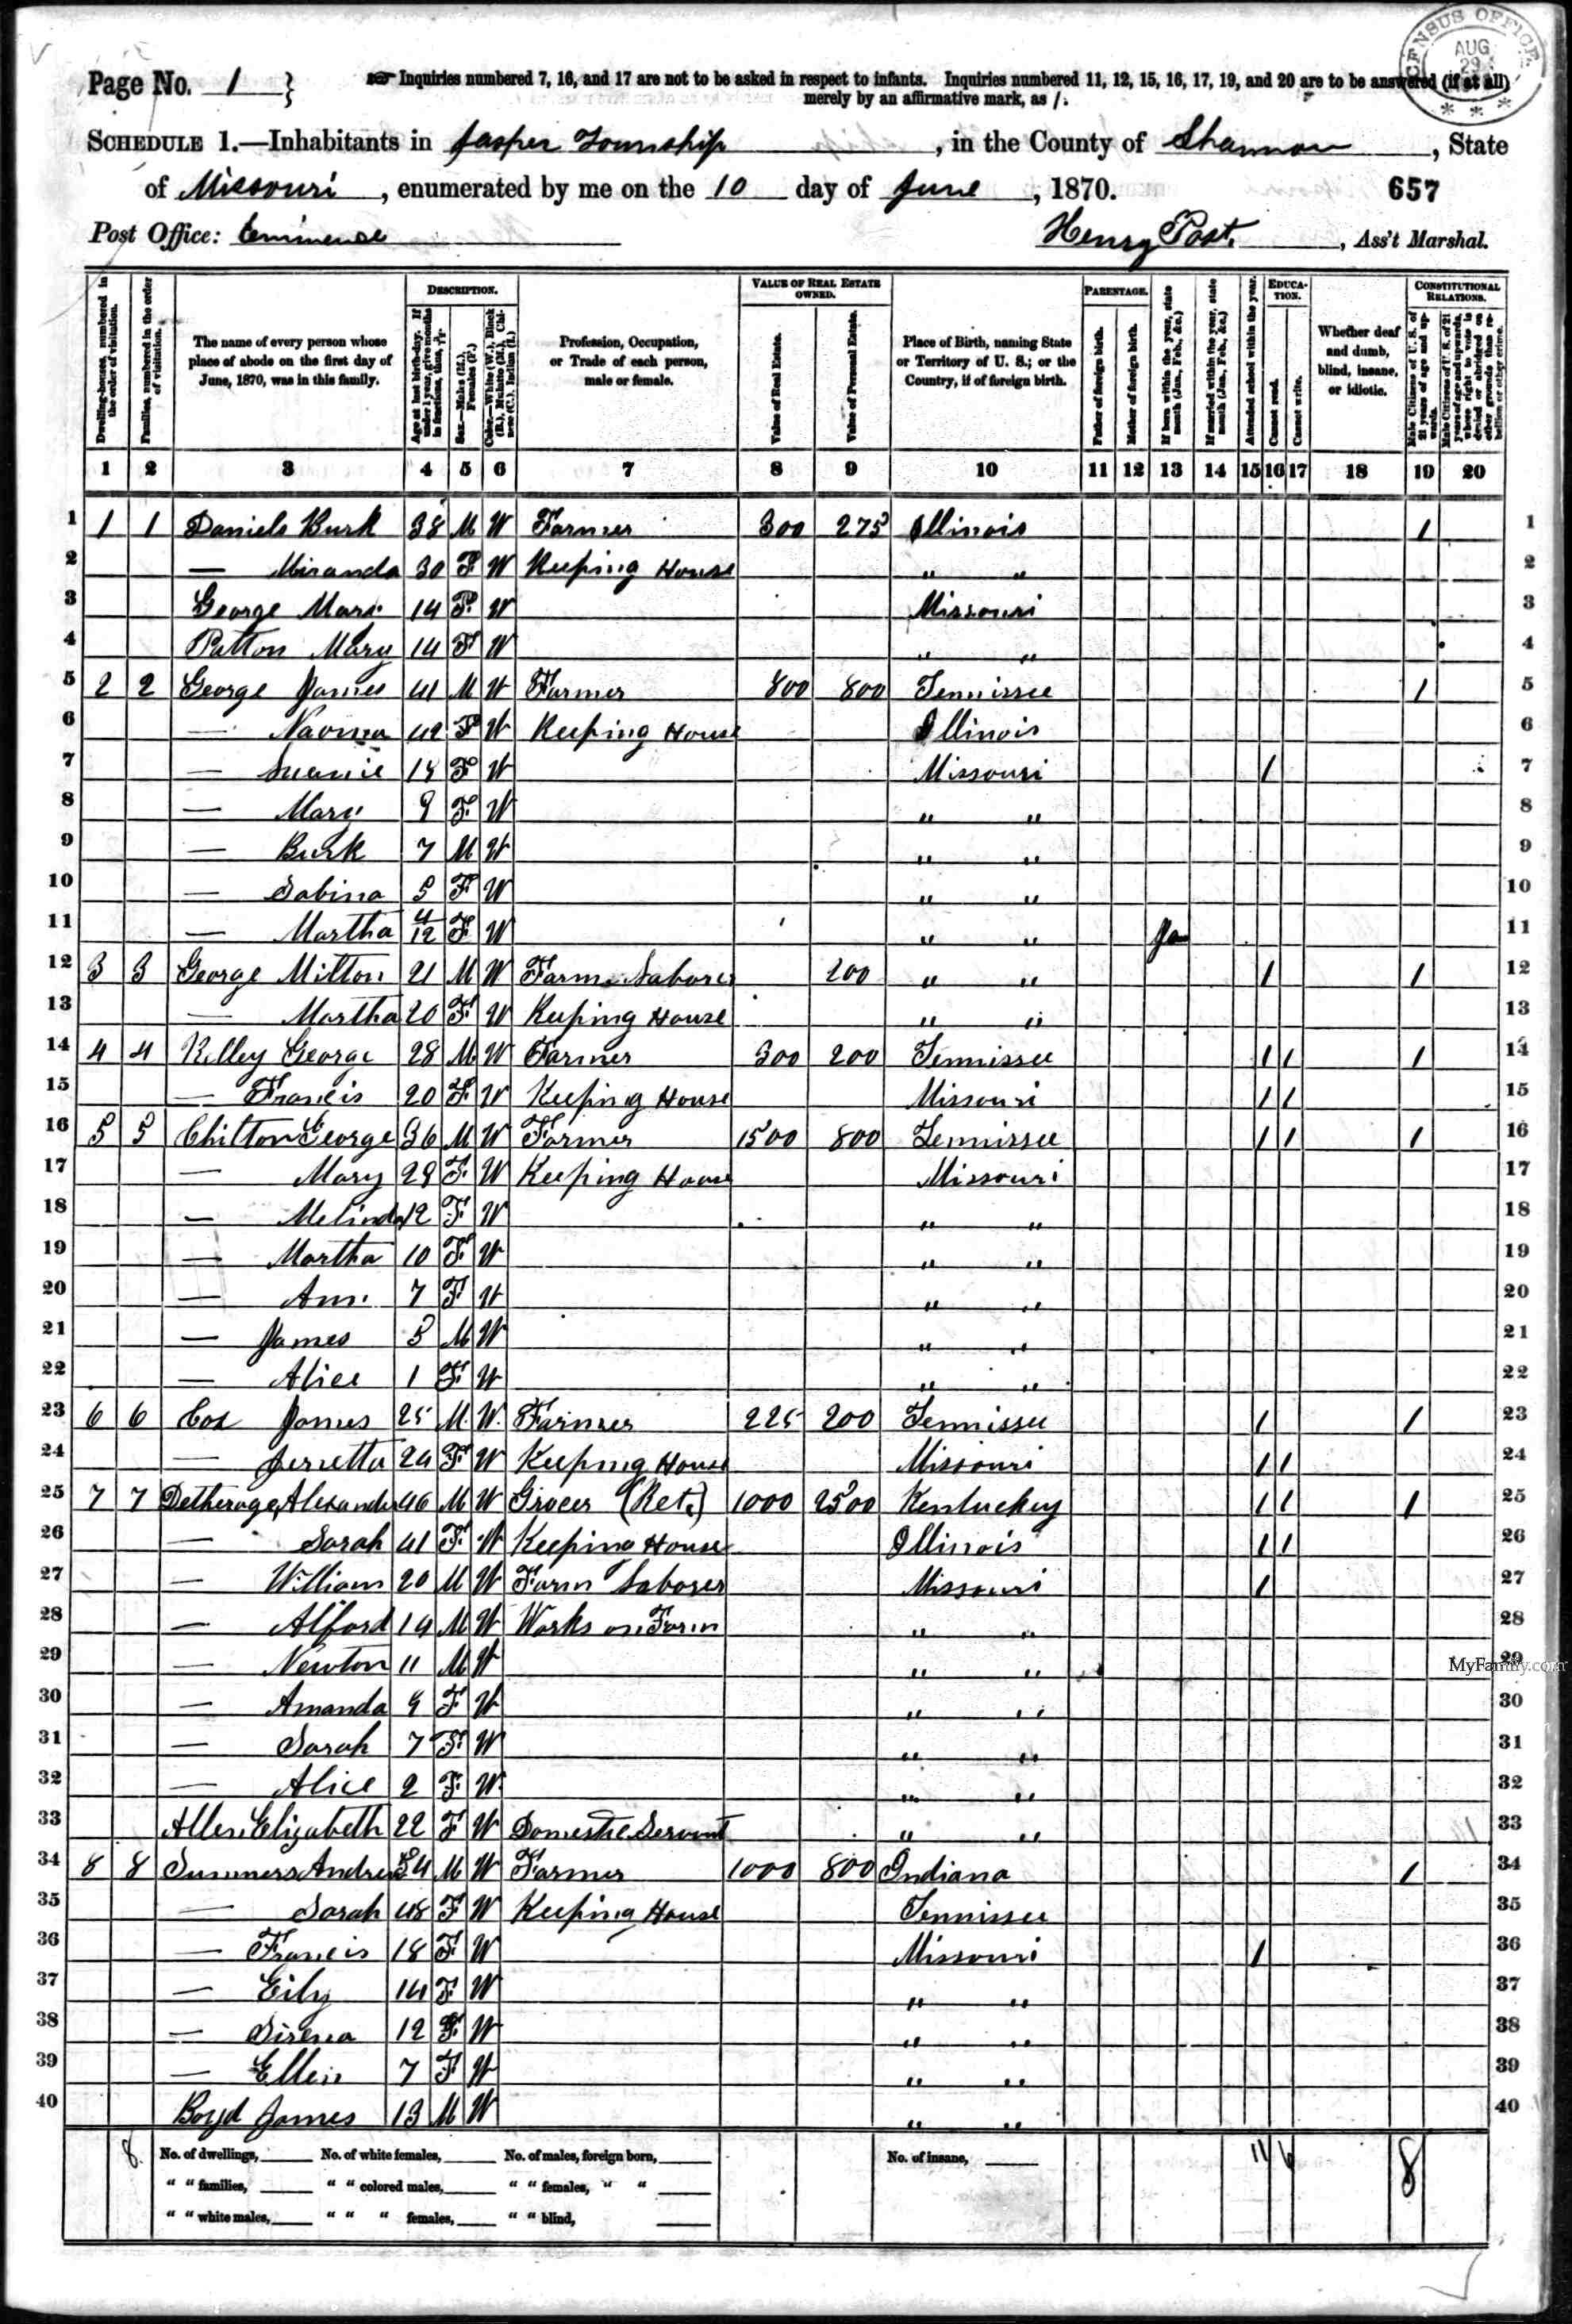 CENSUS OFFICE
AUG
29
* * *
Page No. 1 }
Inquiries numbered 7, 16, and 17 are not to be asked in respect to infants. Inquiries numbered 11, 12, 15, 16, 17, 19, and 20 are to be answered (if at all)
merely by an affirmative mark, as /.
SCHEDULE 1.—Inhabitants in Jasper Township, in the County of Shannon, State
of Missouri, enumerated by me on the 10 day of June, 1870. 657
Post Office: Eminence Henry Post, Ass't Marshal.
Dwelling-houses, numbered in the order of visitation.
Families, numbered in the order of visitation.
The name of every person whose place of abode on the first day of June, 1870, was in this family.
DESCRIPTION.
Age at last birth-day. If under 1 year, give months in fractions, thus,
Sex.—Males (M.), Females (F.)
Color.—White (W.), Black (B.), Mulatto (M.), Chinese (C.), Indian (I.)
Profession, Occupation, or Trade of each person, male or female.
VALUE OF REAL ESTATE OWNED.
Value of Real Estate.
Value of Personal Estate.
Place of Birth, naming State or Territory of U. S.; or the Country, if of foreign birth.
PARENTAGE.
Father of foreign birth.
Mother of foreign birth.
If born within the year, state month (Jan., Feb., &c.)
If married within the year, state month (Jan., Feb., &c.)
Attended school within the year.
EDUCATION.
Cannot read.
Cannot write.
Whether deaf and dumb, blind, insane, or idiotic.
CONSTITUTIONAL RELATIONS.
Male Citizens of U. S. of 21 years of age and upwards.
Male Citizens of U. S. of 21 years of age and upwards, whose right to vote is denied or abridged on other grounds than rebellion or other crime.
1 2 3 4 5 6 7 8 9 10 11 12 13 14 15 16 17 18 19 20
1 1 1 Daniels Burk 38 M W Farmer 300 275 Illinois / 1
2 — Miranda 30 F W Keeping House " " 2
3 George Mary 14 F W Missouri 3
4 Patton Mary 14 F W " " 4
5 2 2 George James 41 M W Farmer 800 800 Tennissee / 5
6 — Naoma 42 F W Keeping House Illinois 6
7 — 18 F W Missouri / 7
8 — Mary 9 F W " " 8
9 — Burk 7 M W " " 9
10 — Sabina 5 F W " " 10
11 — Martha 4/12 F W " " Jan 11
12 3 3 George Milton 21 M W Farm Laborer 200 " " / / 12
13 — Martha 20 F W Keeping House " " 13
14 4 4 Kelley George 28 M W Farmer 300 200 Tennissee / / / 14
15 — Francis 20 F W Keeping House Missouri / / 15
16 5 5 Chilton George 36 M W Farmer 1500 800 Tennissee / / / 16
17 — Mary 29 F W Keeping House Missouri 17
18 — Melinda 12 F W " " 18
19 — Martha 10 F W " " 19
20 — Ann 7 F W " " 20
21 — James 5 M W " " 21
22 — Alice 1 F W " " 22
23 6 6 Cox James 25 M. W. Farmer 225 200 Tennissee / / 23
24 — Jerretta 24 F W Keeping House Missouri / / 24
25 7 7 Detherage, Alexander 46 M W Grocer (Ret.) 1000 2500 Kentuckey / / / 25
26 — Sarah 41 F W Keeping House Illinois / / 26
27 — William 20 M W Farm Laborer Missouri / 27
28 — Alford 14 M W Works on Farm " " 28
29 — Newton 11 M W " " 29
MyFamily.com
30 — Amanda 9 F W " " 30
31 — Sarah 7 F W " " 31
32 — Alice 2 F W " " 32
33 Allen Elizabeth 22 F W Domestic Servant " " 33
34 8 8 Summers Andrew 54 M W Farmer 1000 800 Indiana / 34
35 — Sarah 48 F W Keeping House Tennissee 35
36 — Francis 18 F W Missouri / 36
37 — Eily 14 F W " " 37
38 — Sirena 12 F W " " 38
39 — Ellen 7 F W " " 39
40 Boyd James 13 M W " " 40
8 No. of dwellings, No. of white females, No. of males, foreign born, No. of insane, 11 6 8
" " families, " " colored males, " " females, " "
" " white males, " " " females, " " blind,